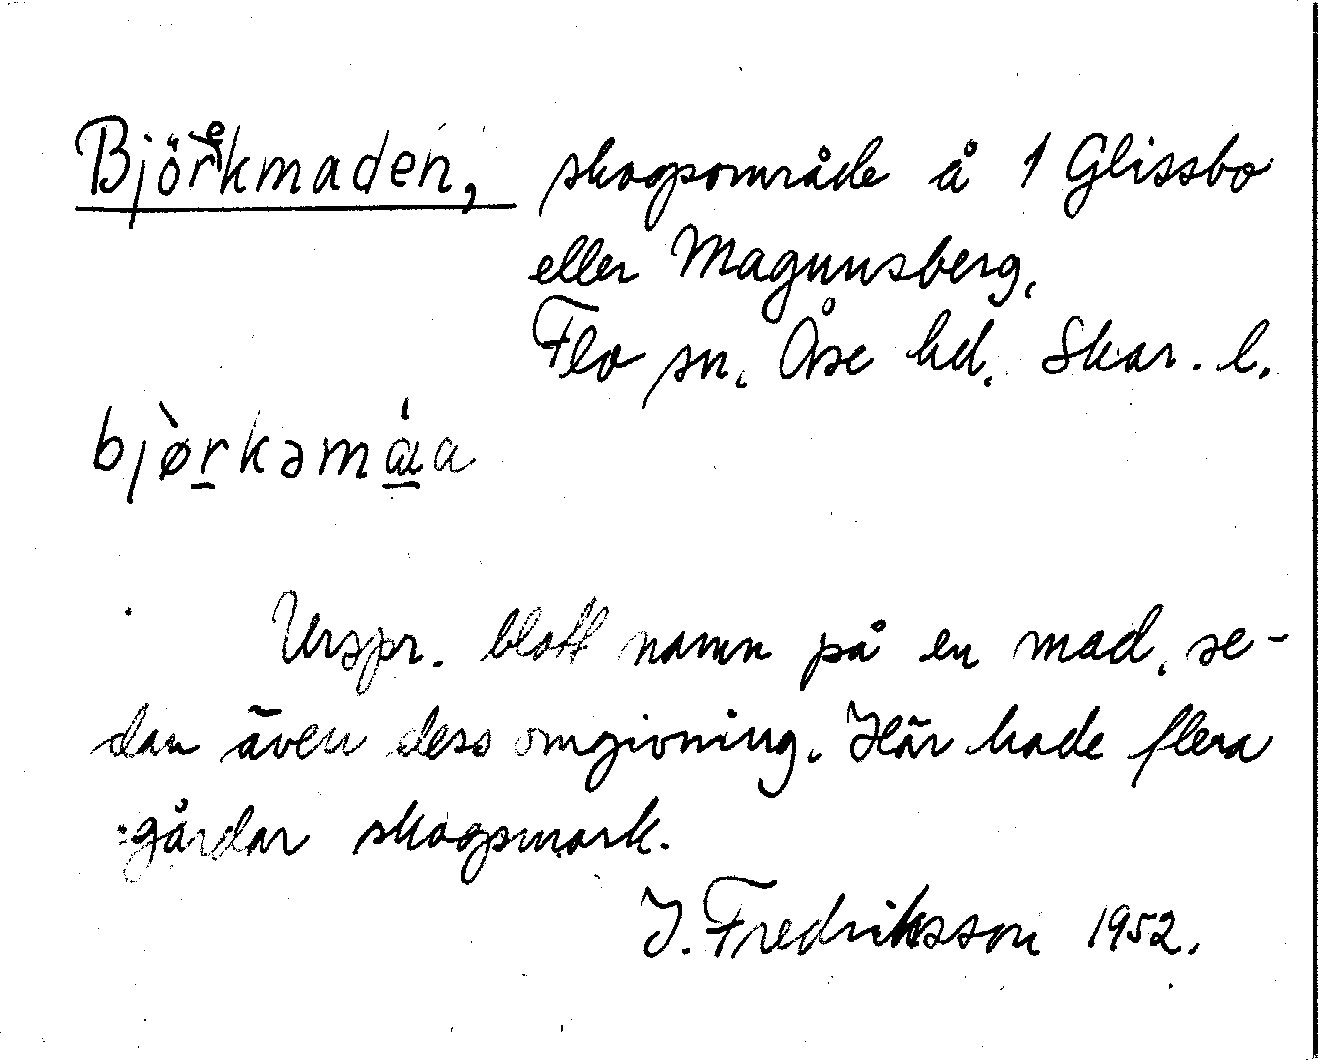 Björkmaden, skogsområde å 1 Glissbo
eller Magnusberg,
Flo sn, Åse hd, Skar. l.
bjørkəmàa
Urspr. blott namn på en mad, se-
dan även dess omgivning. Här hade flera
gårdar skogsmark.
J. Fredriksson 1952.